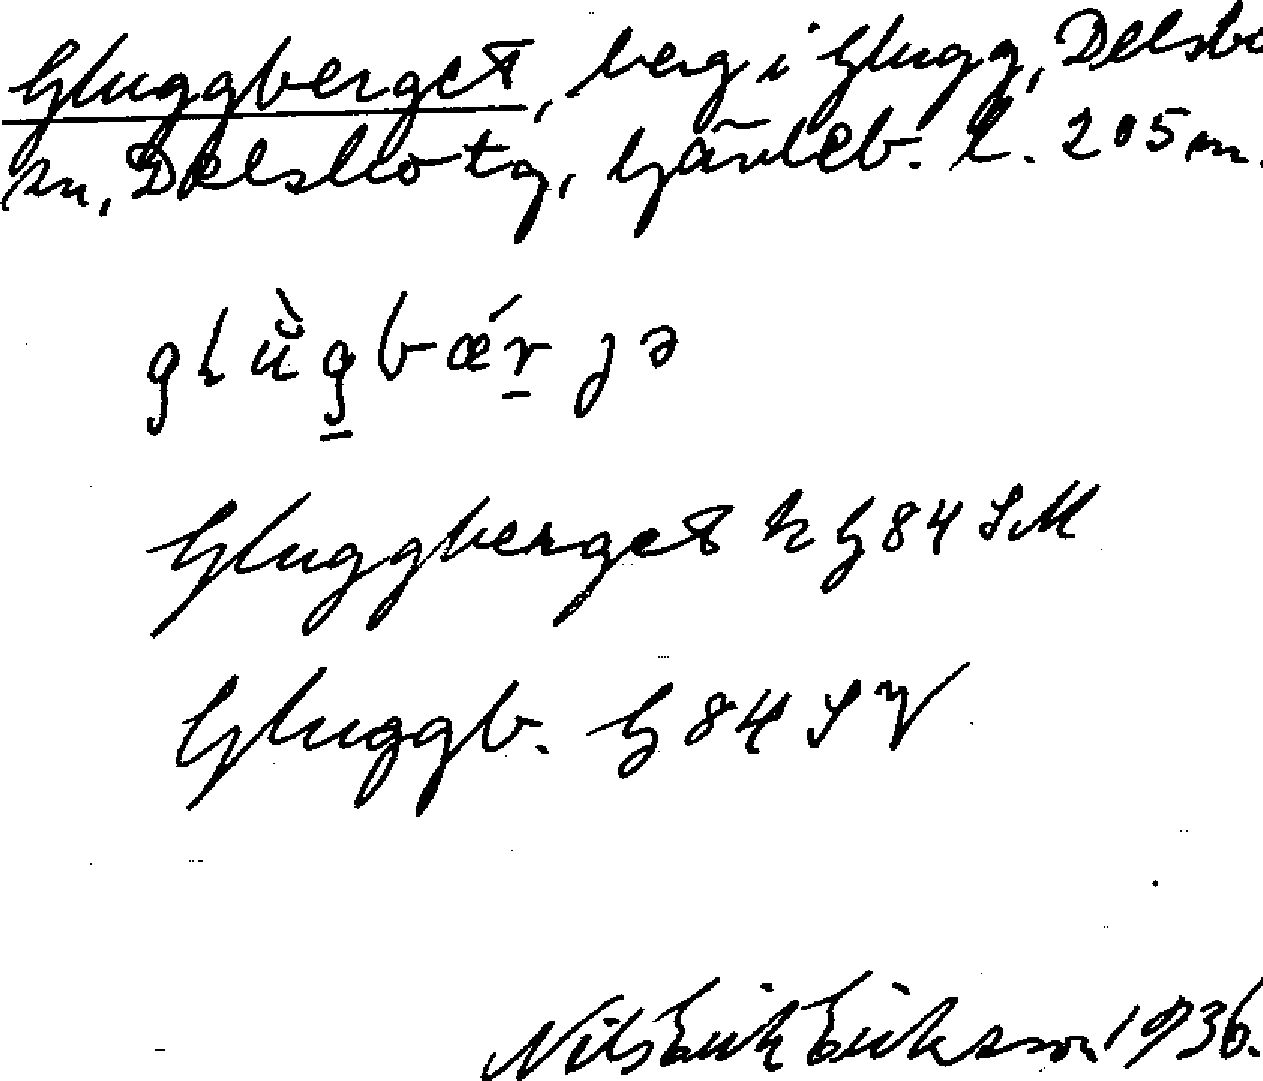 Gluggberget, berg i Glugg, Delsbo
sn, Delsbo tg, Gävleb. l. 205 m.
glùg̱bǽṟjə
Gluggberget k G 84 SM
Gluggb. G 84 SV
Nils Erik Eriksson 1936.